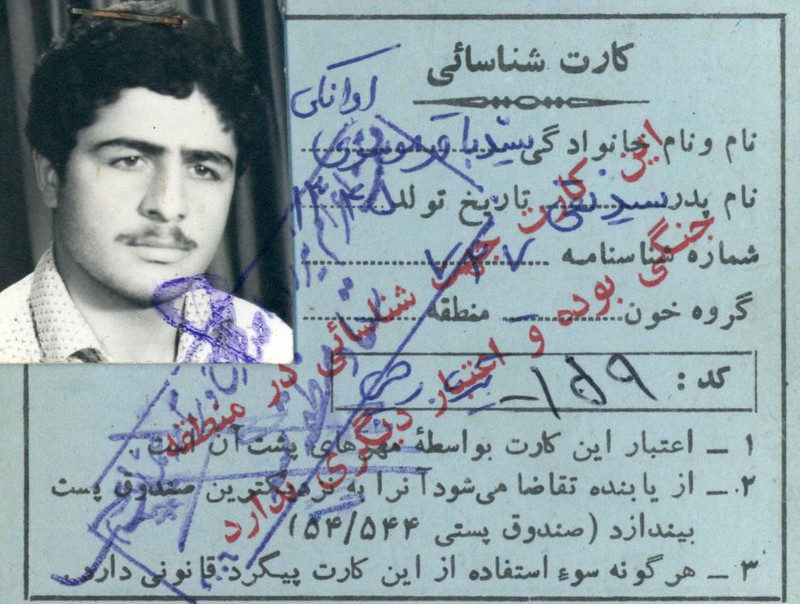 کارت شناسائی
نام و نام خانوادگی سید باقر موسوی
نام پدر سید تقی تاریخ تولد ۱۳۴۵
شماره شناسنامه ۷۲۷
گروه خون منطقه
کد: ۱۵۹
۱ ــ اعتبار این کارت بواسطهٔ مهرهای پشت آن است
۲ ــ از یابنده تقاضا می‌شود آنرا به نزدیکترین صندوق پست
بیندازد (صندوق پستی ۵۴/۵۴۴)
۳ ــ هرگونه سوءِ استفاده از این کارت پیگرد قانونی دارد.
این کارت جهت شناسائی در منطقه
جنگی بوده و اعتبار دیگری ندارد